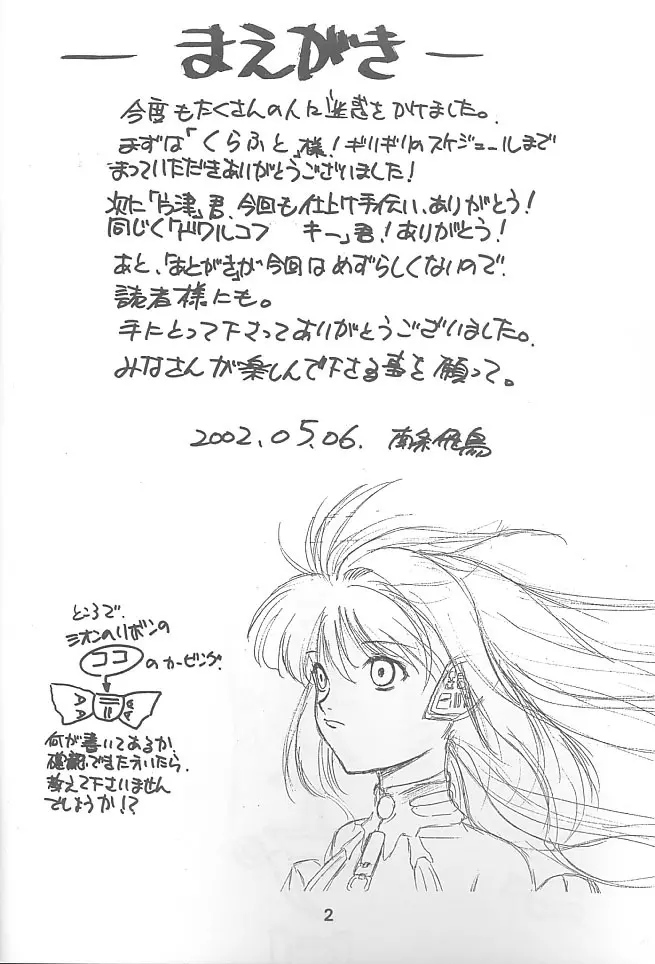 まえがき
今度もたくさんの人に迷惑をかけました。
まずは「くらふと」様！ギリギリのスケジュールまで
まっていただきありがとうございました！
次に「片津」君、今回も仕上げ手伝い、ありがとう！
同じく「ドワルコフ キー」君！ありがとう！
あと、「あとがき」が今回はめずらしくないので、
読者様にも。
手にとって下さってありがとうございました。
みなさんが楽しんで下さる事を願って。
2002.05.06. 南条飛鳥
ところで、
シオンのリボンの
ココ のカービング、
何が書いてあるか、
確認できた方いたら、
教えて下さいません
でしょうか！？
2